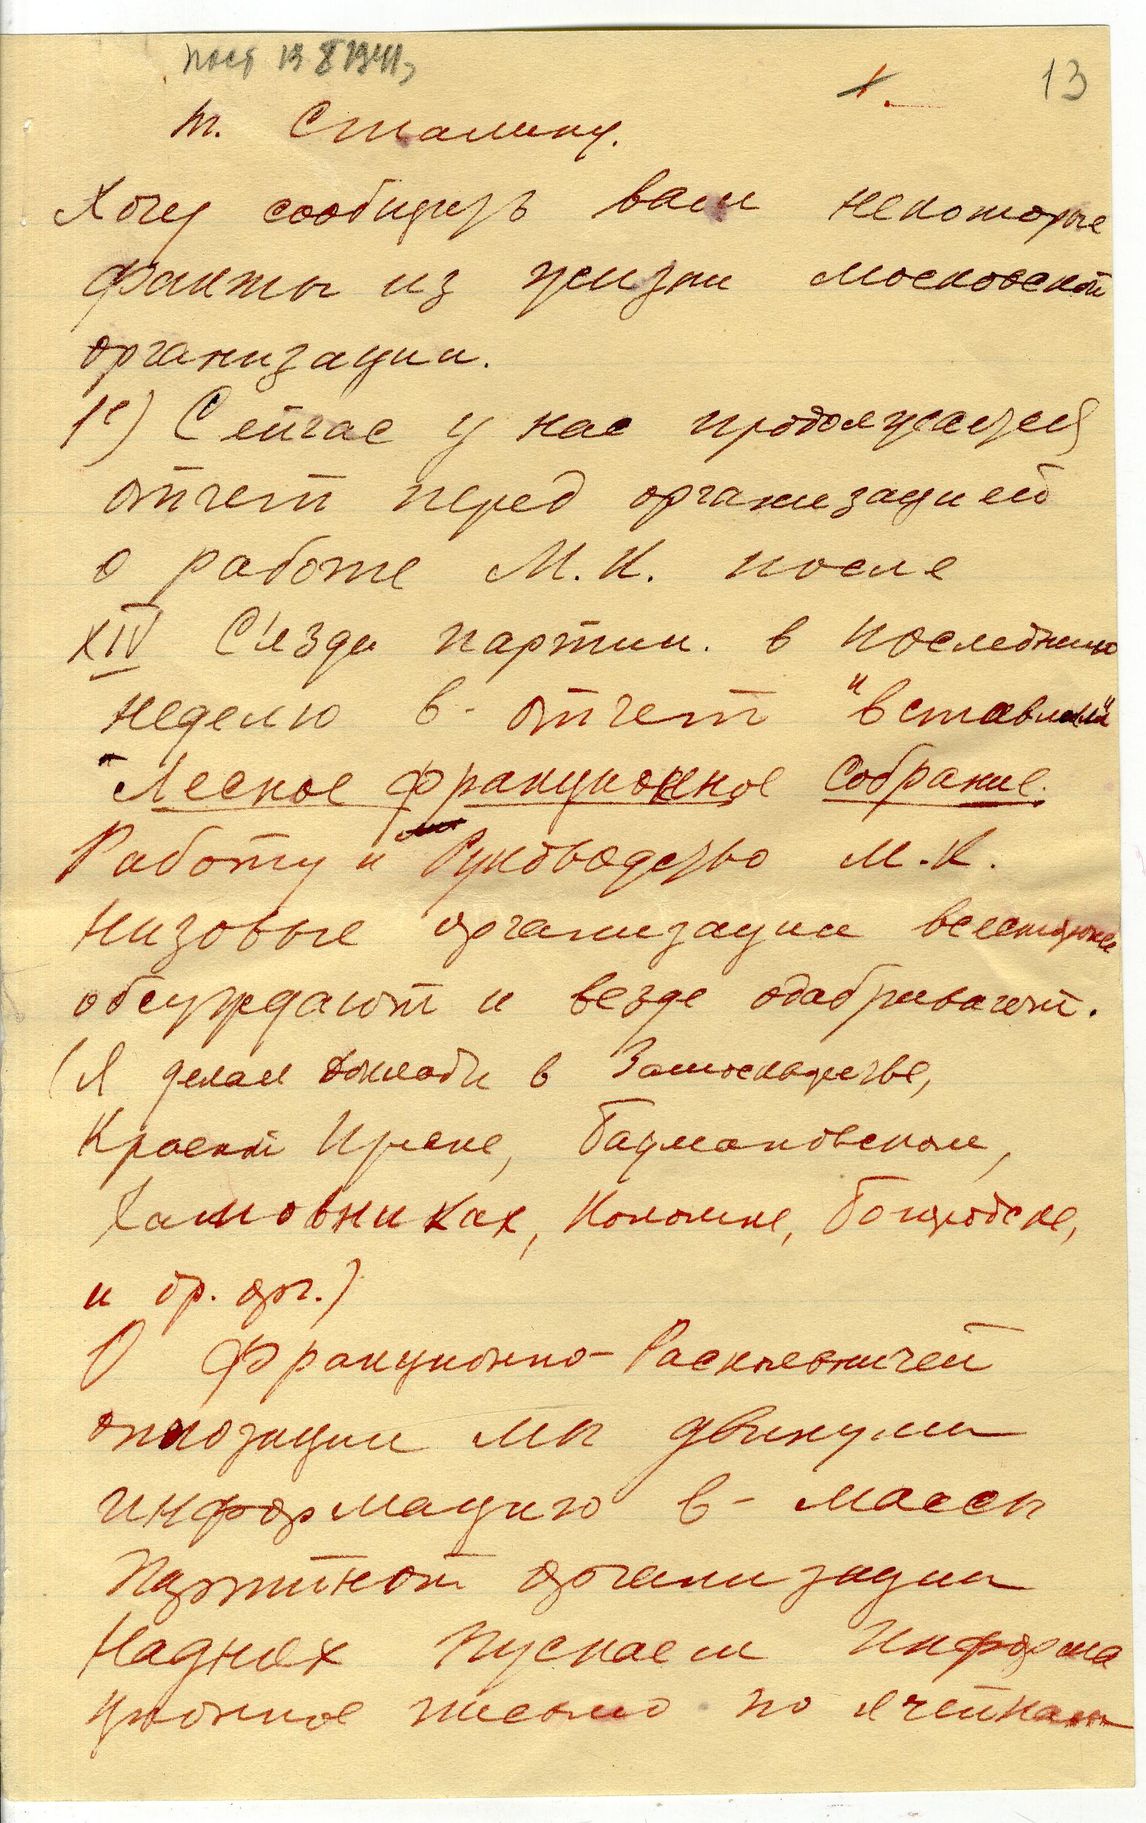 13
1.
т. Сталину.
Хочу сообщить вам некоторые
факты из жизни московской
организации.
1е) Сейчас у нас продолжается
отчет перед организацией
о работе М.К. после
XIV С'езда партии. в последнюю
неделю в- отчет "вставили"
"Лесное фракционное собрание.
Работу и Руководство М.К.
низовые организации всесторонне
обсуждают и везде одабривают.
(Я делал доклады в Замоскваречье,
Красной Пресне, Баумановском,
Хамовниках, Коломне, Богородске,
и др. орг.)
О Фракционно-Раскольничей
оппозации мы двинули
информацию в- массы
Партийной организации
Наднях пускаем Информа
ционное письмо по ячейкам